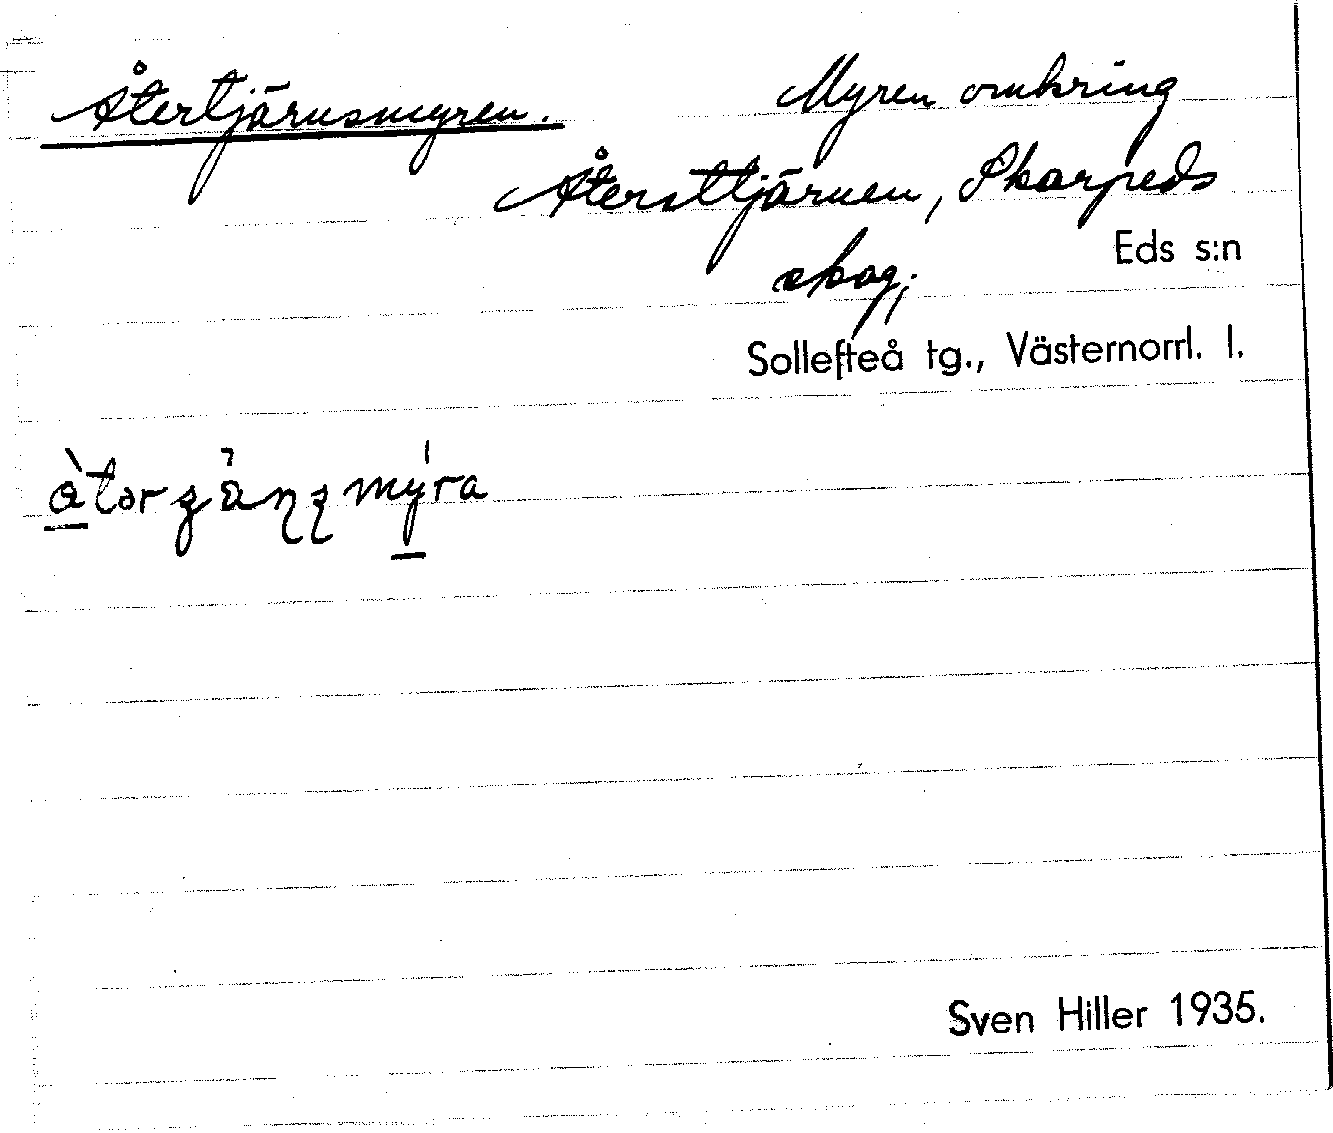 Återtjärnsmyren. Myren omkring
Återstjärnen, Skarpeds
skog;
Eds s:n
Sollefteå tg., Västernorrl. l.
Sven Hiller 1935.